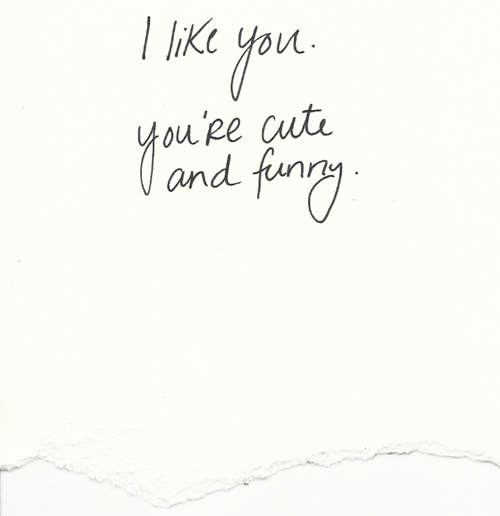 I like you.
you're cute
and funny.